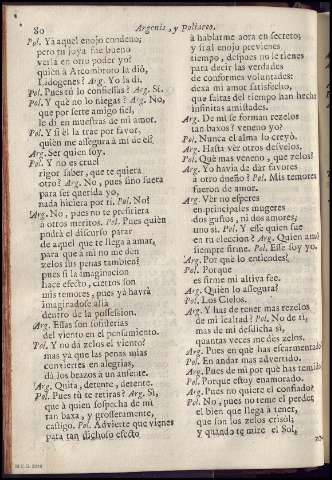 80
Argenis, y Poliarco,
Pol. Yà aquel enojo condeno;
pero tu joya fue bueno
verla en otro poder yo?
quien à Arcombroto la diò,
Ladogenes? Arg. Yo la dì.
Pol. Pues tu lo confiessas? Arg. Sì.
Pol. Y què no lo niegas? Arg. No,
que por serte amigo fiel,
le dì en muestras de mi amor.
Pol. Y si èl la trae por favor,
quien me assegura à mi de èl?
Arg. Ser quien soy.
Pol. Y no es cruel
rigor saber, que te quiera
otro? Arg. No, pues sino fuera
para ser querida yo,
nada hiciera por ti. Pol. No?
Arg. No, pues no te prefiriera
à otros meritos. Pol. Pues quièn
podrà el discurso parar
de aquel que te llega à amar,
para que à mi no me dèn
zelos sus penas tambien?
pues si la imaginacion
hace efecto, ciertos son
mis temores, pues yà havrà
imaginadose allà
dentro de la possession.
Arg. Essas son sofisterias
del viento en el pensamiento.
Pol. Y no dà zelos el viento?
mas yà que las penas mias
conviertes en alegrias,
dà los brazos à un amante.
Arg. Quita, detente, detente.
Pol. Pues tù te retiras? Arg. Sì,
que à quien sospecha de mi
tan baxa, y grosseramente,
castigo. Pol. Advierte que vienes
para tan dichoso efecto
à hablarme aora en secreto;
y si al enojo previenes
tiempo, despues no le tienes
para decir las verdades
de conformes voluntades:
dexa mi amor satisfecho,
que faltas del tiempo han hecho
infinitas amistades.
Arg. De mi se forman rezelos
tan baxos? veneno yo?
Pol. Nunca el alma lo creyò.
Arg. Hasta vèr otros desvelos.
Pol. Què mas veneno, que zelos?
Arg. Yo havia de dàr favores
à otro dueño? Pol. Mis temores
fueron de amor.
Arg. Vèr no esperes
en principales mugeres
dos gustos, ni dos amores;
uno sì. Pol. Y esse quien fue
en tu eleccion? Arg. Quien amò
siempre firme. Pol. Esse soy yo.
Arg. Por què lo entiendes?
Pol. Porque
es firme mi altiva fee.
Arg. Quien lo assegura?
Pol. Los Cielos.
Arg. Y has de tener mas rezelos
de mi lealtad? Pol. No de ti,
mas de mi desdicha sì,
quantas veces me dès zelos.
Arg. Pues en què has escarmentado?
Pol. En andar mas advertido.
Arg. Pues de mi por què has temido?
Pol. Porque estoy enamorado.
Arg. Pues no quiere el confiado?
Pol. No, pues no teme el perder
el bien que llega à tener,
que son los zelos crisol;
y quando te mire el Sol,